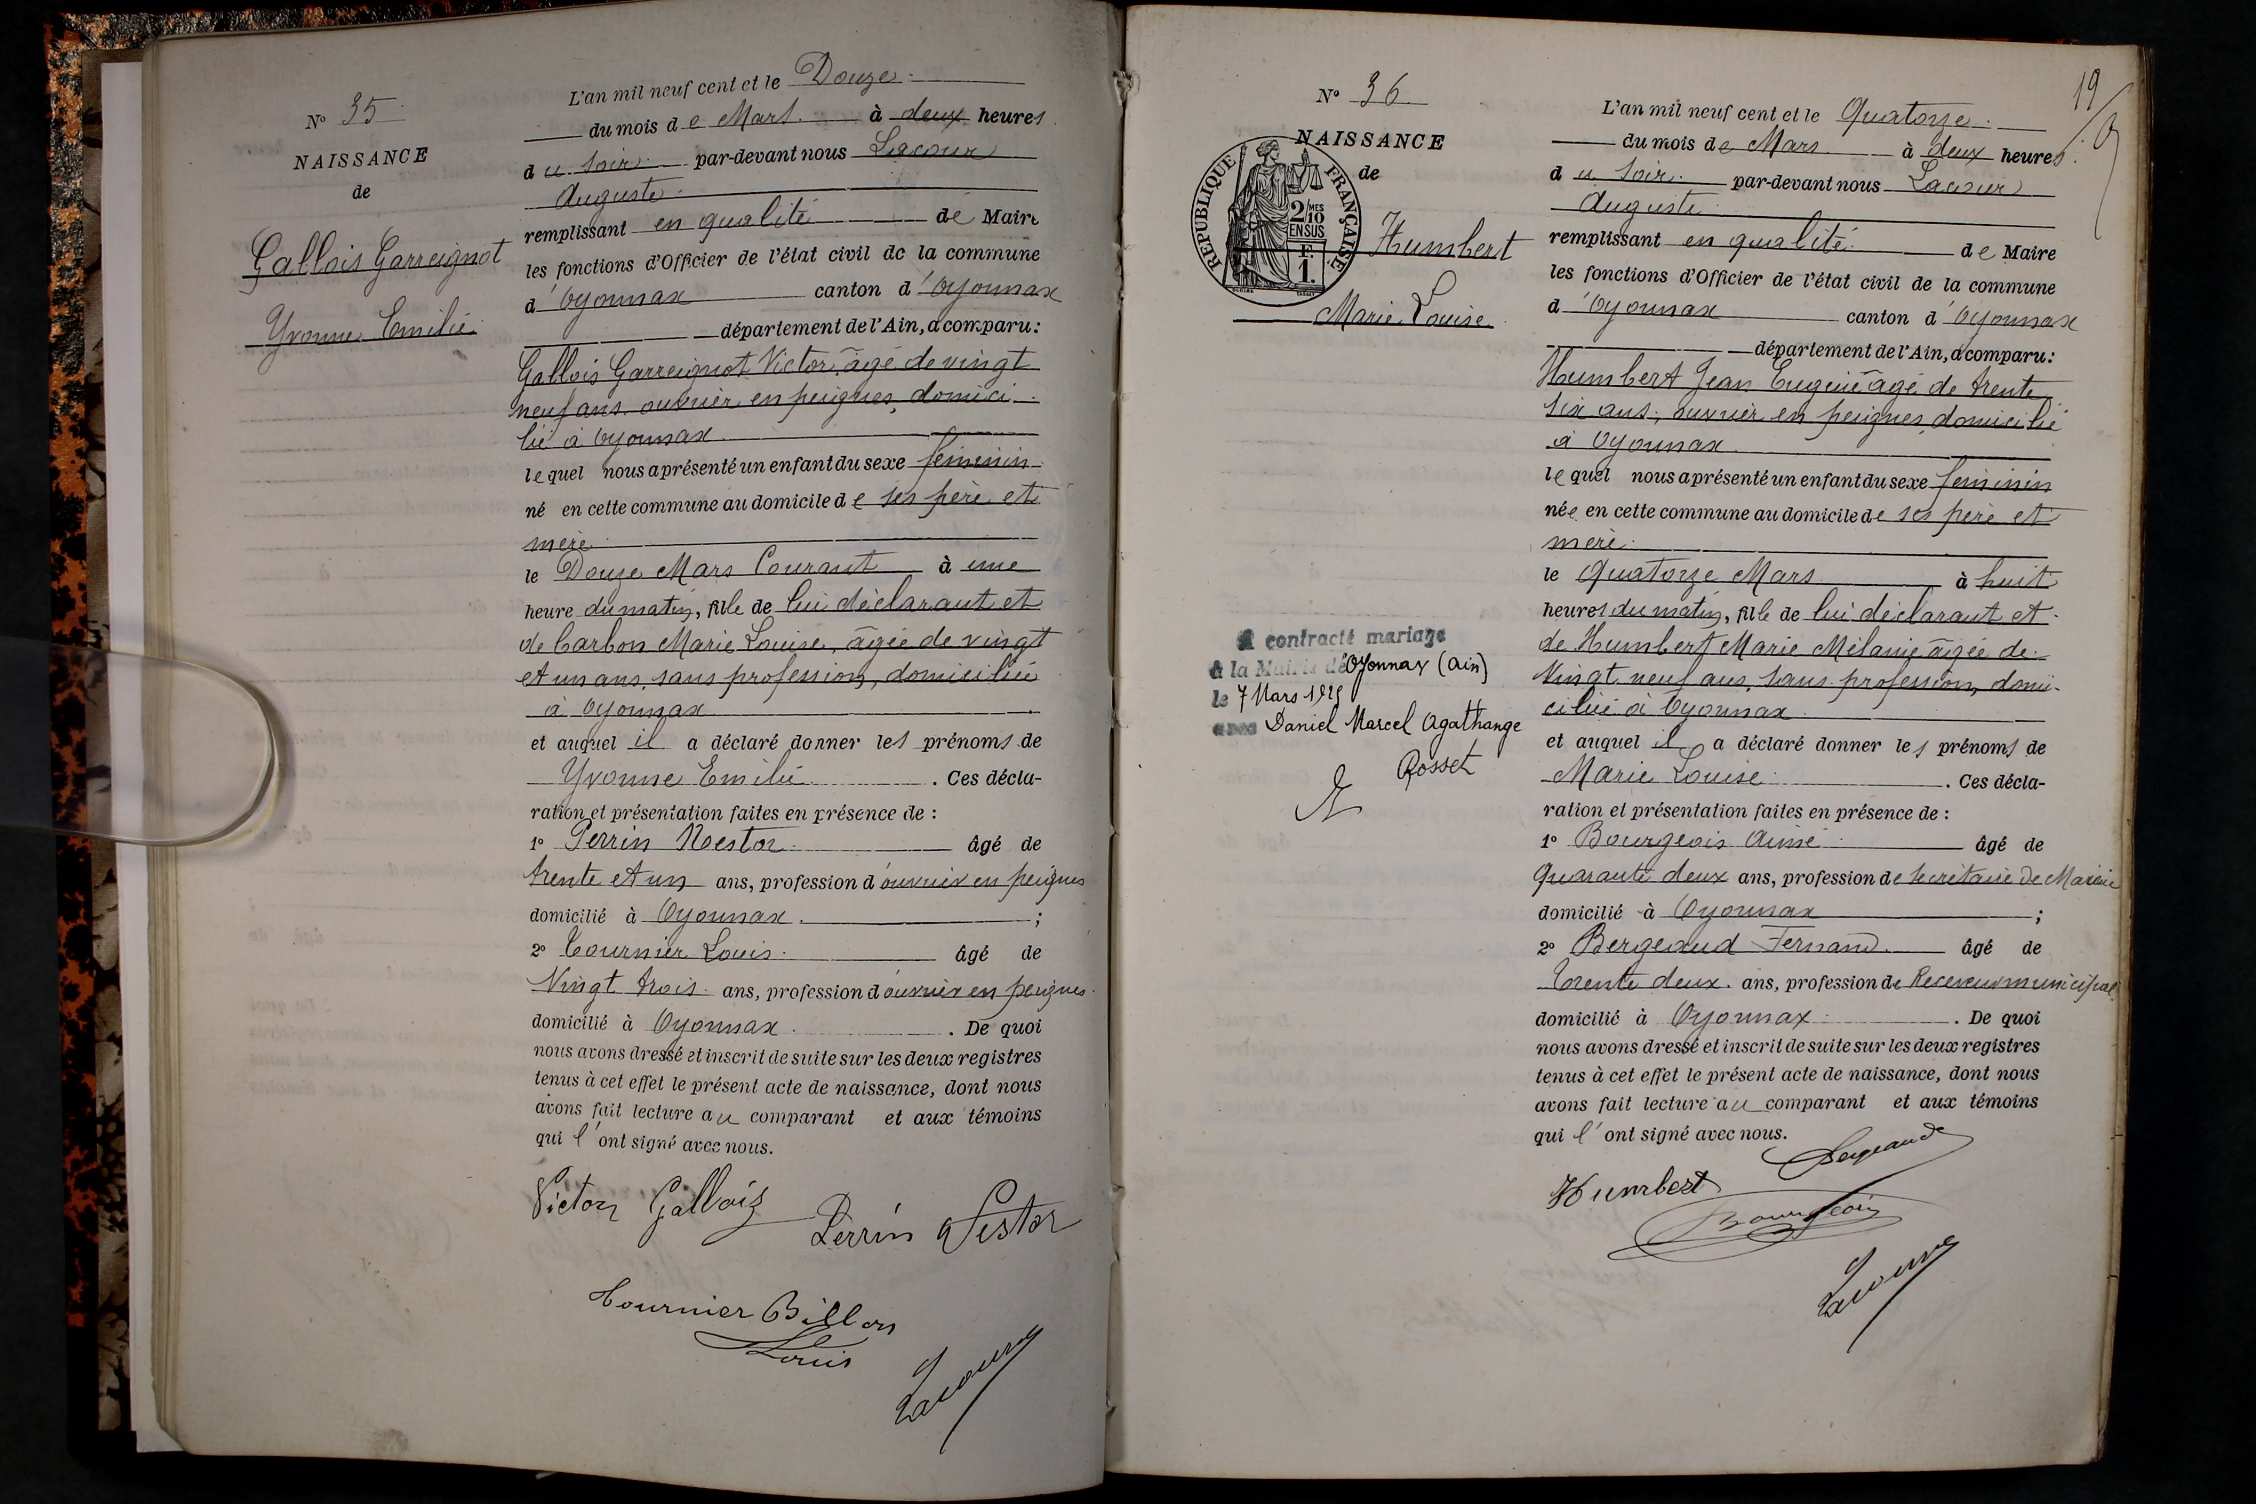 N° 35
NAISSANCE
de
Gallois Garreignot
Yvonne Emilie
L'an mil neuf cent et le Douze
du mois de Mars à deux heures
du soir par-devant nous Lacour
Auguste
remplissant en qualité de Maire
les fonctions d'Officier de l'état civil de la commune
d'Oyonnax canton d'Oyonnax
département de l'Ain, a comparu:
Gallois Garreignot Victor, âgé de vingt
neuf ans, ouvrier en peignes, domici-
lié à Oyonnax
lequel nous a présenté un enfant du sexe féminin
né en cette commune au domicile de ses père et
mère
le Douze Mars Courant à une
heure du matin, fille de lui déclarant et
de Carbon Marie Louise, âgée de vingt
et un ans, sans profession, domiciliée
à Oyonnax
et auquel il a déclaré donner les prénoms de
Yvonne Emilie. Ces décla-
ration et présentation faites en présence de :
1° Perrin Nestor âgé de
trente et un ans, profession d'ouvrier en peignes
domicilié à Oyonnax ;
2° Tournier Louis âgé de
Vingt trois ans, profession d'ouvrier en peignes
domicilié à Oyonnax. De quoi
nous avons dressé et inscrit de suite sur les deux registres
tenus à cet effet le présent acte de naissance, dont nous
avons fait lecture au comparant et aux témoins
qui l'ont signé avec nous.
Victor Gallois
Perrin Nestor
Tournier Billon
Louis
Lacour
19
N° 36
NAISSANCE
de
REPUBLIQUE FRANÇAISE
2/10 MES
EN SUS
F.
1.
Humbert
Marie Louise
A contracté mariage
à la Mairie de Oyonnax (Ain)
le 7 Mars 1925
avec Daniel Marcel Agathange
Rosset
L'an mil neuf cent et le Quatorze
du mois de Mars à deux heures
du soir par-devant nous Lacour
Auguste
remplissant en qualité de Maire
les fonctions d'Officier de l'état civil de la commune
d'Oyonnax canton d'Oyonnax
département de l'Ain, a comparu:
Humbert Jean Eugène âgé de trente
six ans, ouvrier en peignes, domicilié
à Oyonnax
lequel nous a présenté un enfant du sexe féminin
née en cette commune au domicile de ses père et
mère
le Quatorze Mars à huit
heures du matin, fille de lui déclarant et
de Humbert Marie Mélanie âgée de
Vingt neuf ans, sans profession, domi-
ciliée à Oyonnax
et auquel il a déclaré donner les prénoms de
Marie Louise. Ces décla-
ration et présentation faites en présence de :
1° Bourgeois Aimé âgé de
Quarante deux ans, profession de Secrétaire de Mairie
domicilié à Oyonnax ;
2° Bergeaud Fernand âgé de
Trente deux ans, profession de Receveur municipal
domicilié à Oyonnax. De quoi
nous avons dressé et inscrit de suite sur les deux registres
tenus à cet effet le présent acte de naissance, dont nous
avons fait lecture au comparant et aux témoins
qui l'ont signé avec nous.
Bergeaud
Humbert
Bourgeois
Lacour